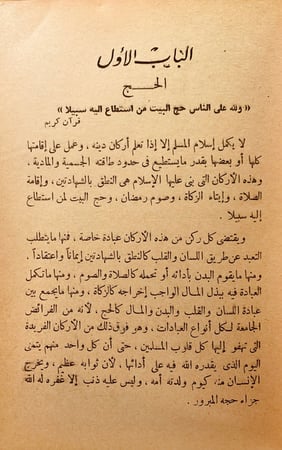 الباب الأول
الحج
« ولله على الناس حج البيت من استطاع اليه سبيلا »
قرآن كريم
لا يكمل إسلام المسلم إلا إذا تعلم أركان دينه ، وعمل على إقامتها
كلها أو بعضها بقدر ما يستطيع فى حدود طاقته الجسمية والمادية .
وهذه الأركان التى بنى عليها الإسلام هى النطق بالشهادتين ، وإقامة
الصلاة ، وإيتاء الزكاة ، وصوم رمضان ، وحج البيت لمن استطاع
إليه سبيلا .
ويقتضى كل ركن من هذه الأركان عبادة خاصة ، فمنها ما يتطلب
التعبد عن طريق اللسان والقلب كالنطق بالشهادتين إيماناً واعتقاداً .
ومنها ما يقوم البدن بأدائه أو تحمله كالصلاة والصوم ، ومنها ما تكمل
العبادة فيه ببذل المال الواجب إخراجه كالزكاة ، ومنها ما يجمع بين
عبادة اللسان والقلب والبدن والمال كالحج ، لأنه من الفرائض
الجامعة لكل أنواع العبادات ، وهو فوق ذلك من الأركان الفريدة
التى تهفو إليها كل قلوب المسلمين ، حتى أن كل واحد منهم يتمنى
اليوم الذى يقدره الله فيه على أدائها ، لأن ثوابه عظيم ، ويخرج
الإنسان منه كيوم ولدته أمه ، وليس عليه ذنب إلا غفره له الله
جزاء حجه المبرور .